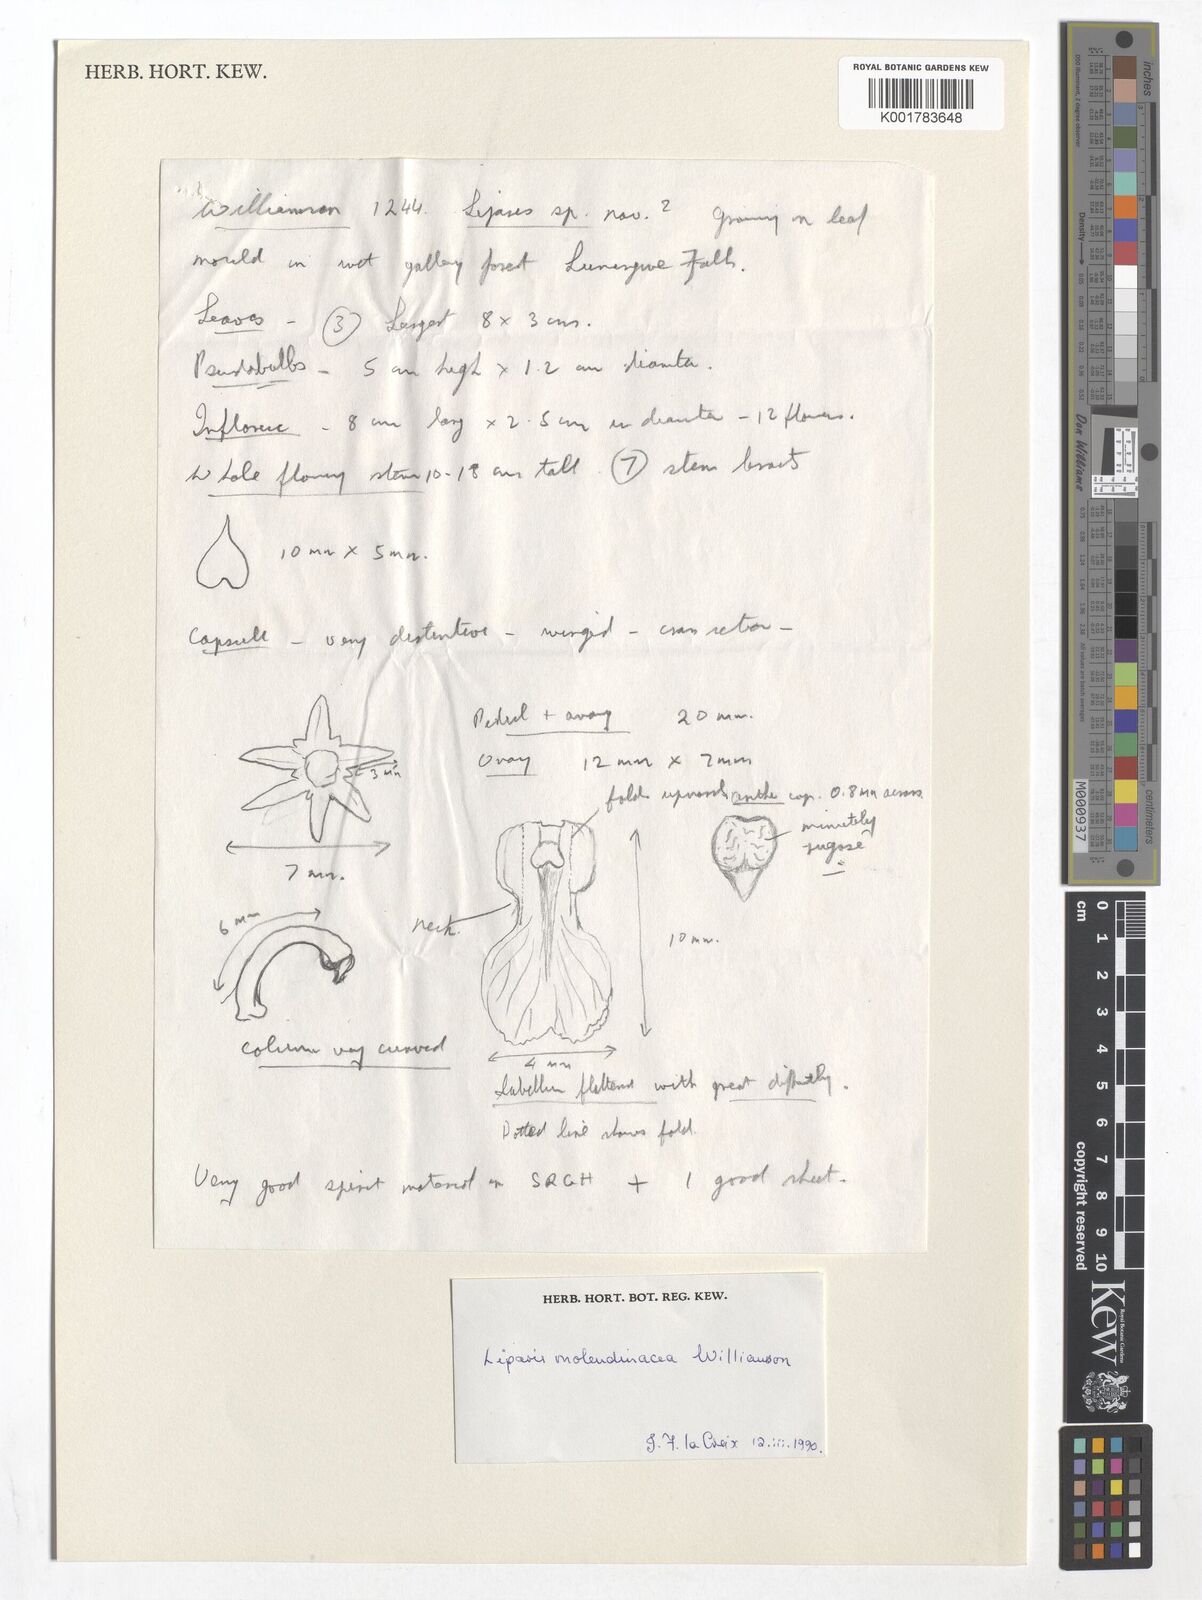 HERB. HORT. KEW.
ROYAL BOTANIC GARDENS KEW
K001783648
Williamson 1244. Liparis sp. nov.? Growing in leaf
mould in wet gallery forest Falls.
Leaves - (3) Largest 8 x 3 cms.
Pseudobulbs - 5 cm high x 1.2 cm diameter.
Infloresc - 8 cm long x 2.5 cm in diameter - 12 flowers.
Whole flowering stem 10-18 cms tall. (7) stem bracts
10 mm x 5 mm.
Capsule - very distinctive - winged - cross section -
Pedicel + ovary 20 mm.
Ovary 12 mm x 7 mm
3 mm
7 mm.
folds upwards
anther cap. 0.8 mm across
minutely
rugose
neck.
10 mm.
6 mm
Column very curved
4 mm
Labellum flattened with great difficulty.
Dotted line shows fold.
Very good spirit material in SRGH + 1 good sheet.
HERB. HORT. BOT. REG. KEW.
Liparis molendinacea Williamson
I. F. la Croix 12.iii.1990.
inches
centimeters
D50 Illuminant, 2 degree observer
Density
Don Williams
All values are average
M000937
0 1 2 3 4 5 6 7 8 9 10
cm
copyright reserved
Royal Botanic Gardens
Kew